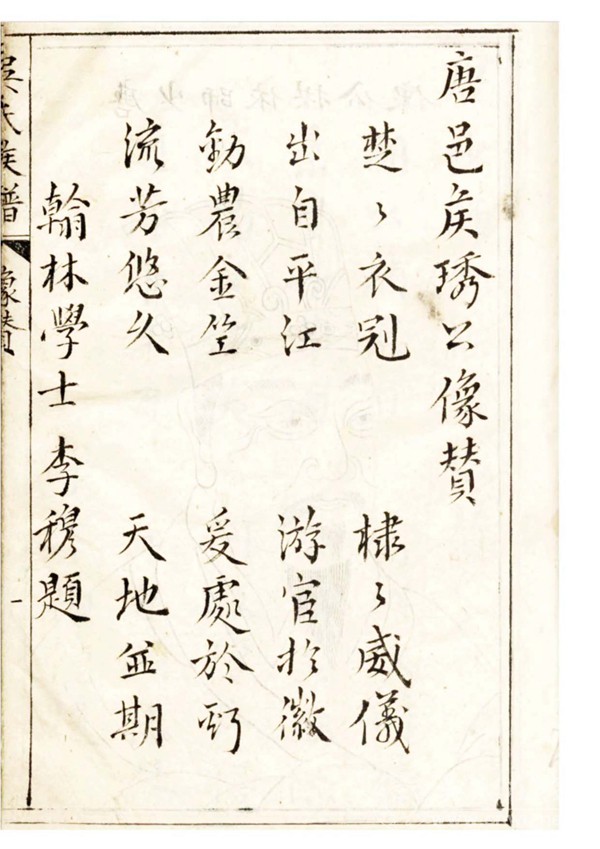 唐邑矦琇公像賛
楚〻衣冠 棣〻威儀
出自平江 游官於徽
勧農金竺 爰處於
流芳悠久 天地並期
翰林學士李穆題
吳氏族譜 像賛
一